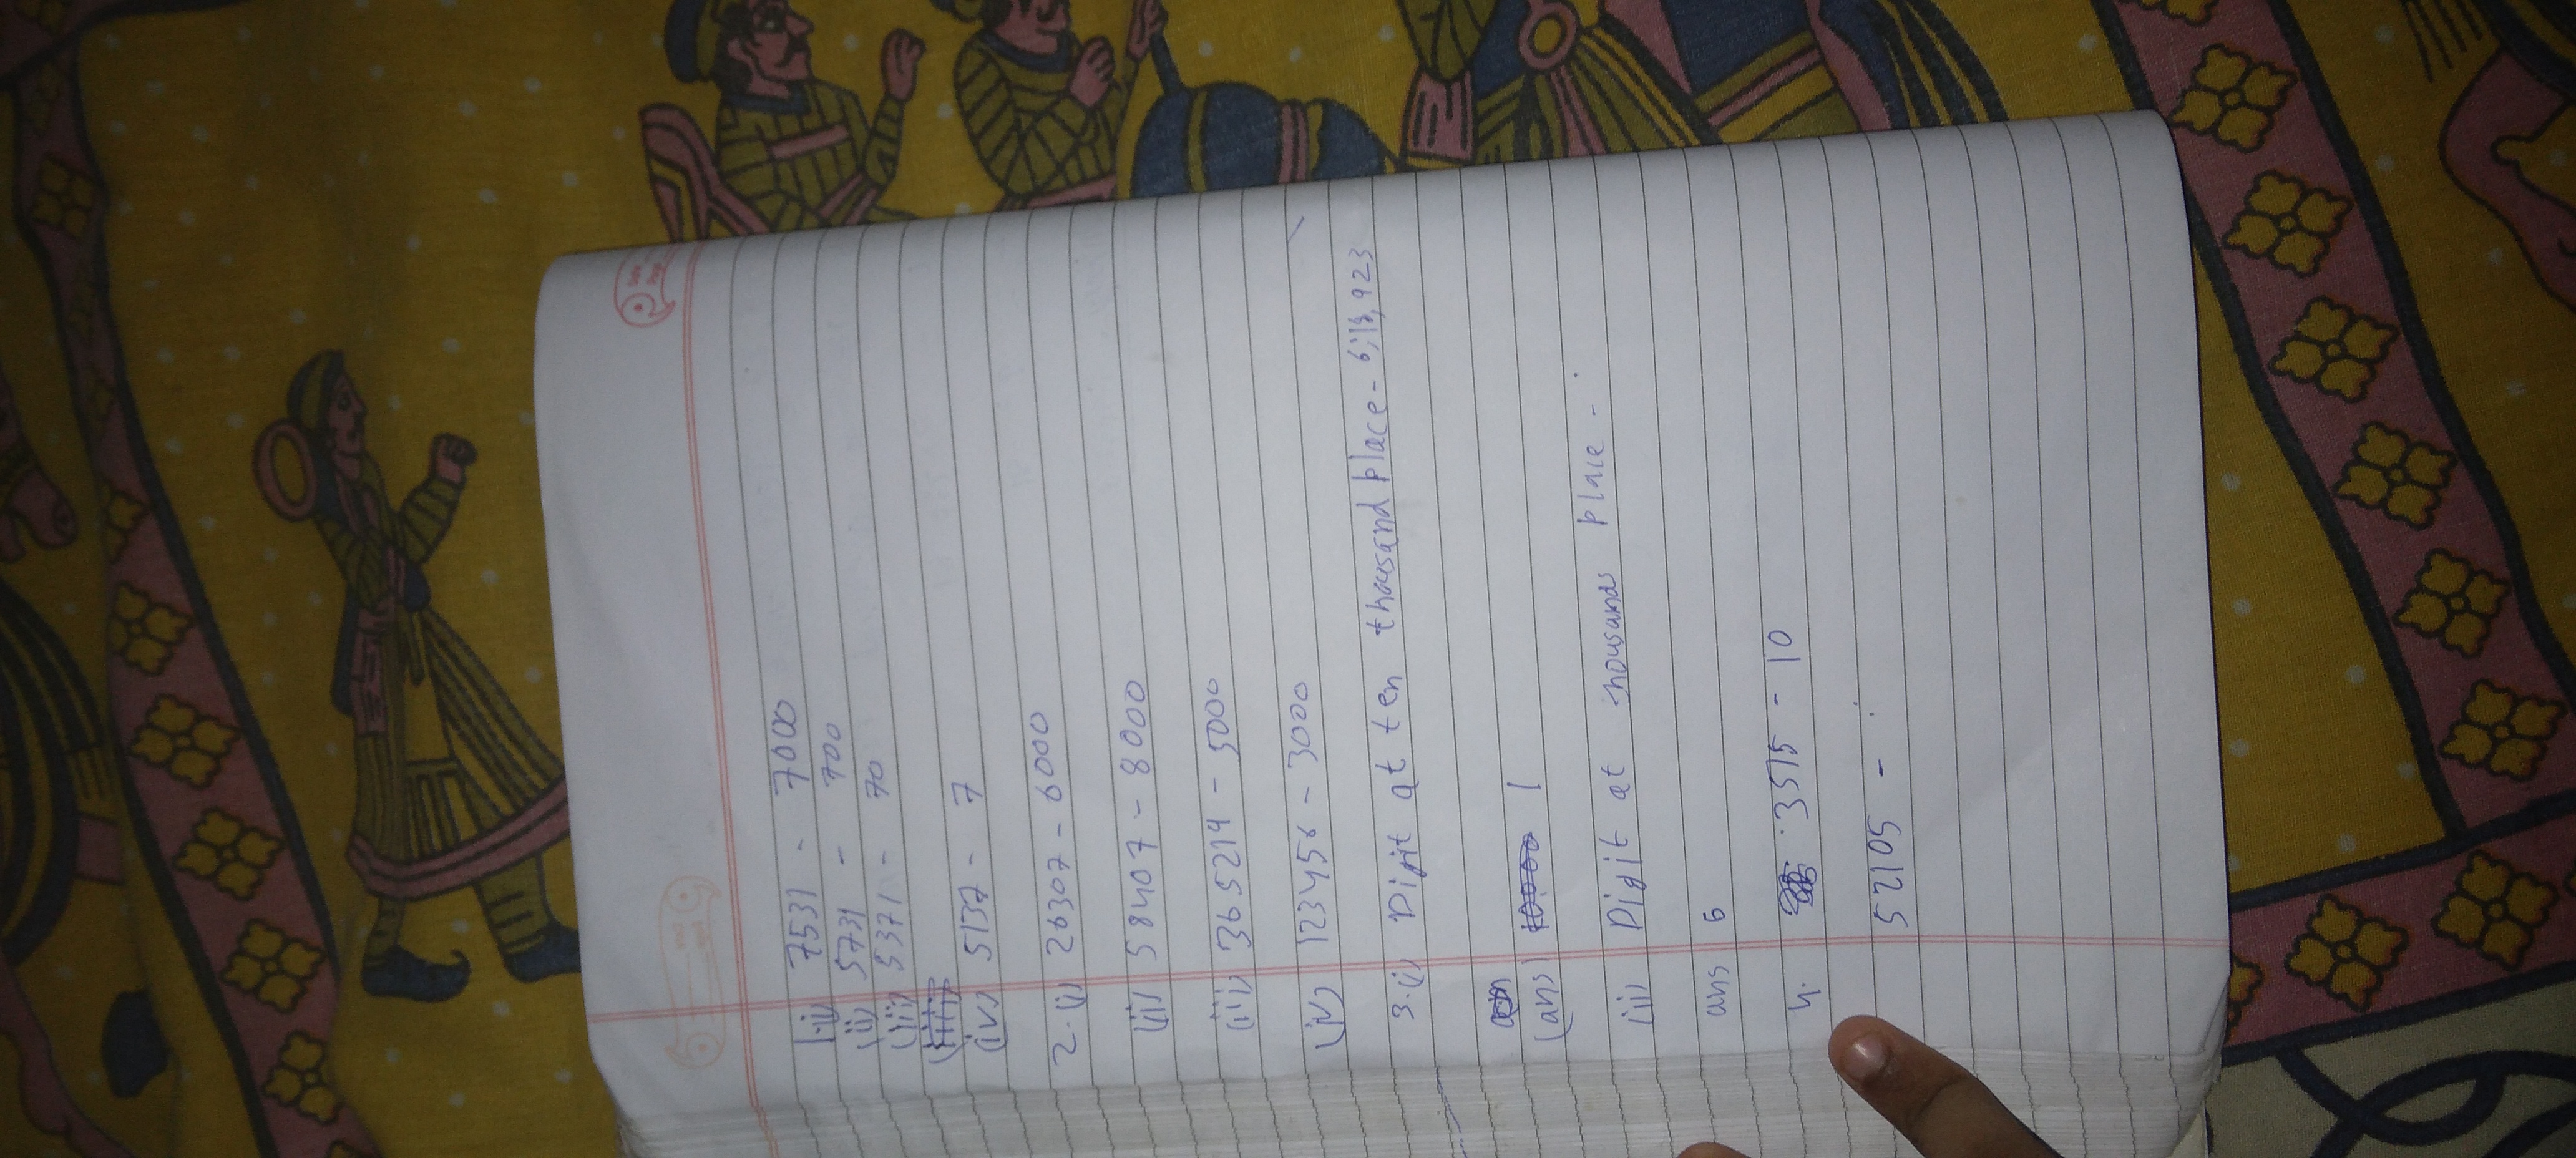 1.(i) 7531 - 7000
(ii) 5731 - 700
(iii) 5371 - 70
(iv) 5137 - 7
2.(i) 26307 - 6000
(ii) 58407 - 8000
(iii) 365214 - 5000
(iv) 123456 - 3000
3.(i) Digit at ten thousand place -
(ans) 1
(ii) Digit at thousands place -
ans 6
4. 3515 - 10
52105 -